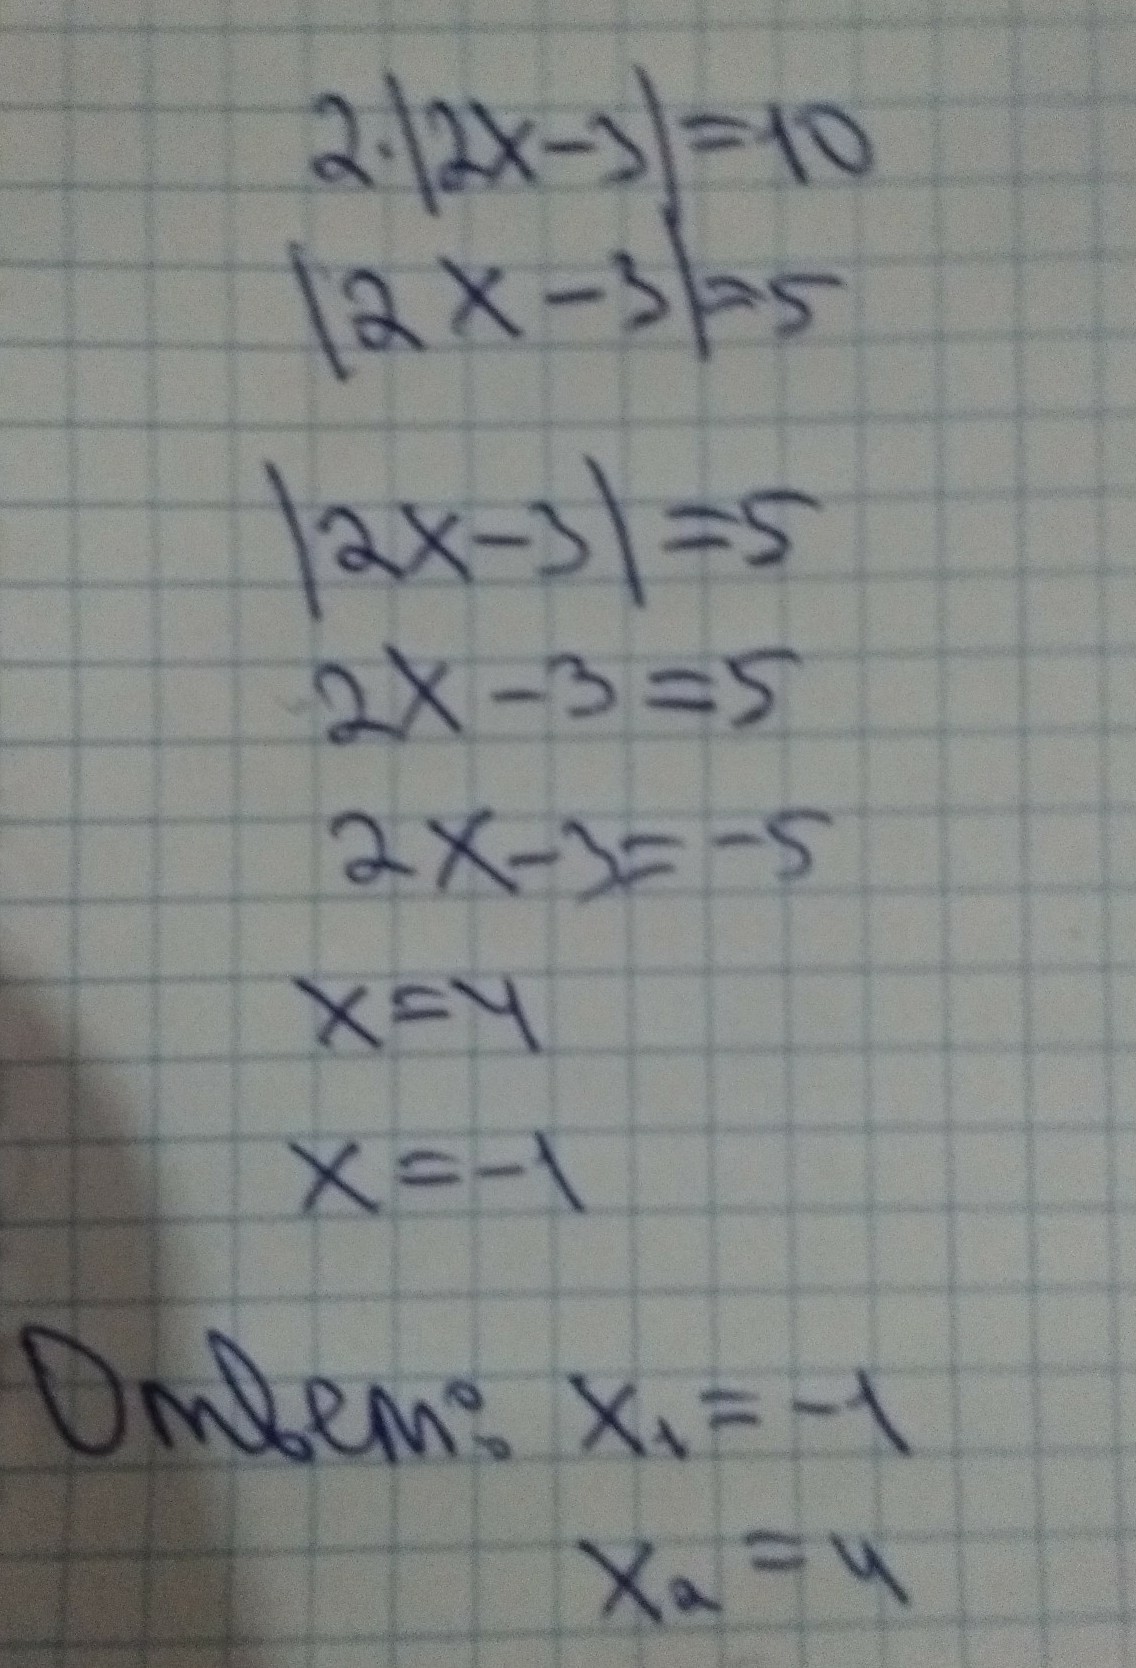 2·|2x-3|=10
|2x-3|=5
|2x-3|=5
2x-3=5
2x-3=-5
x=4
x=-1
Ответ: x₁=-1
x₂=4